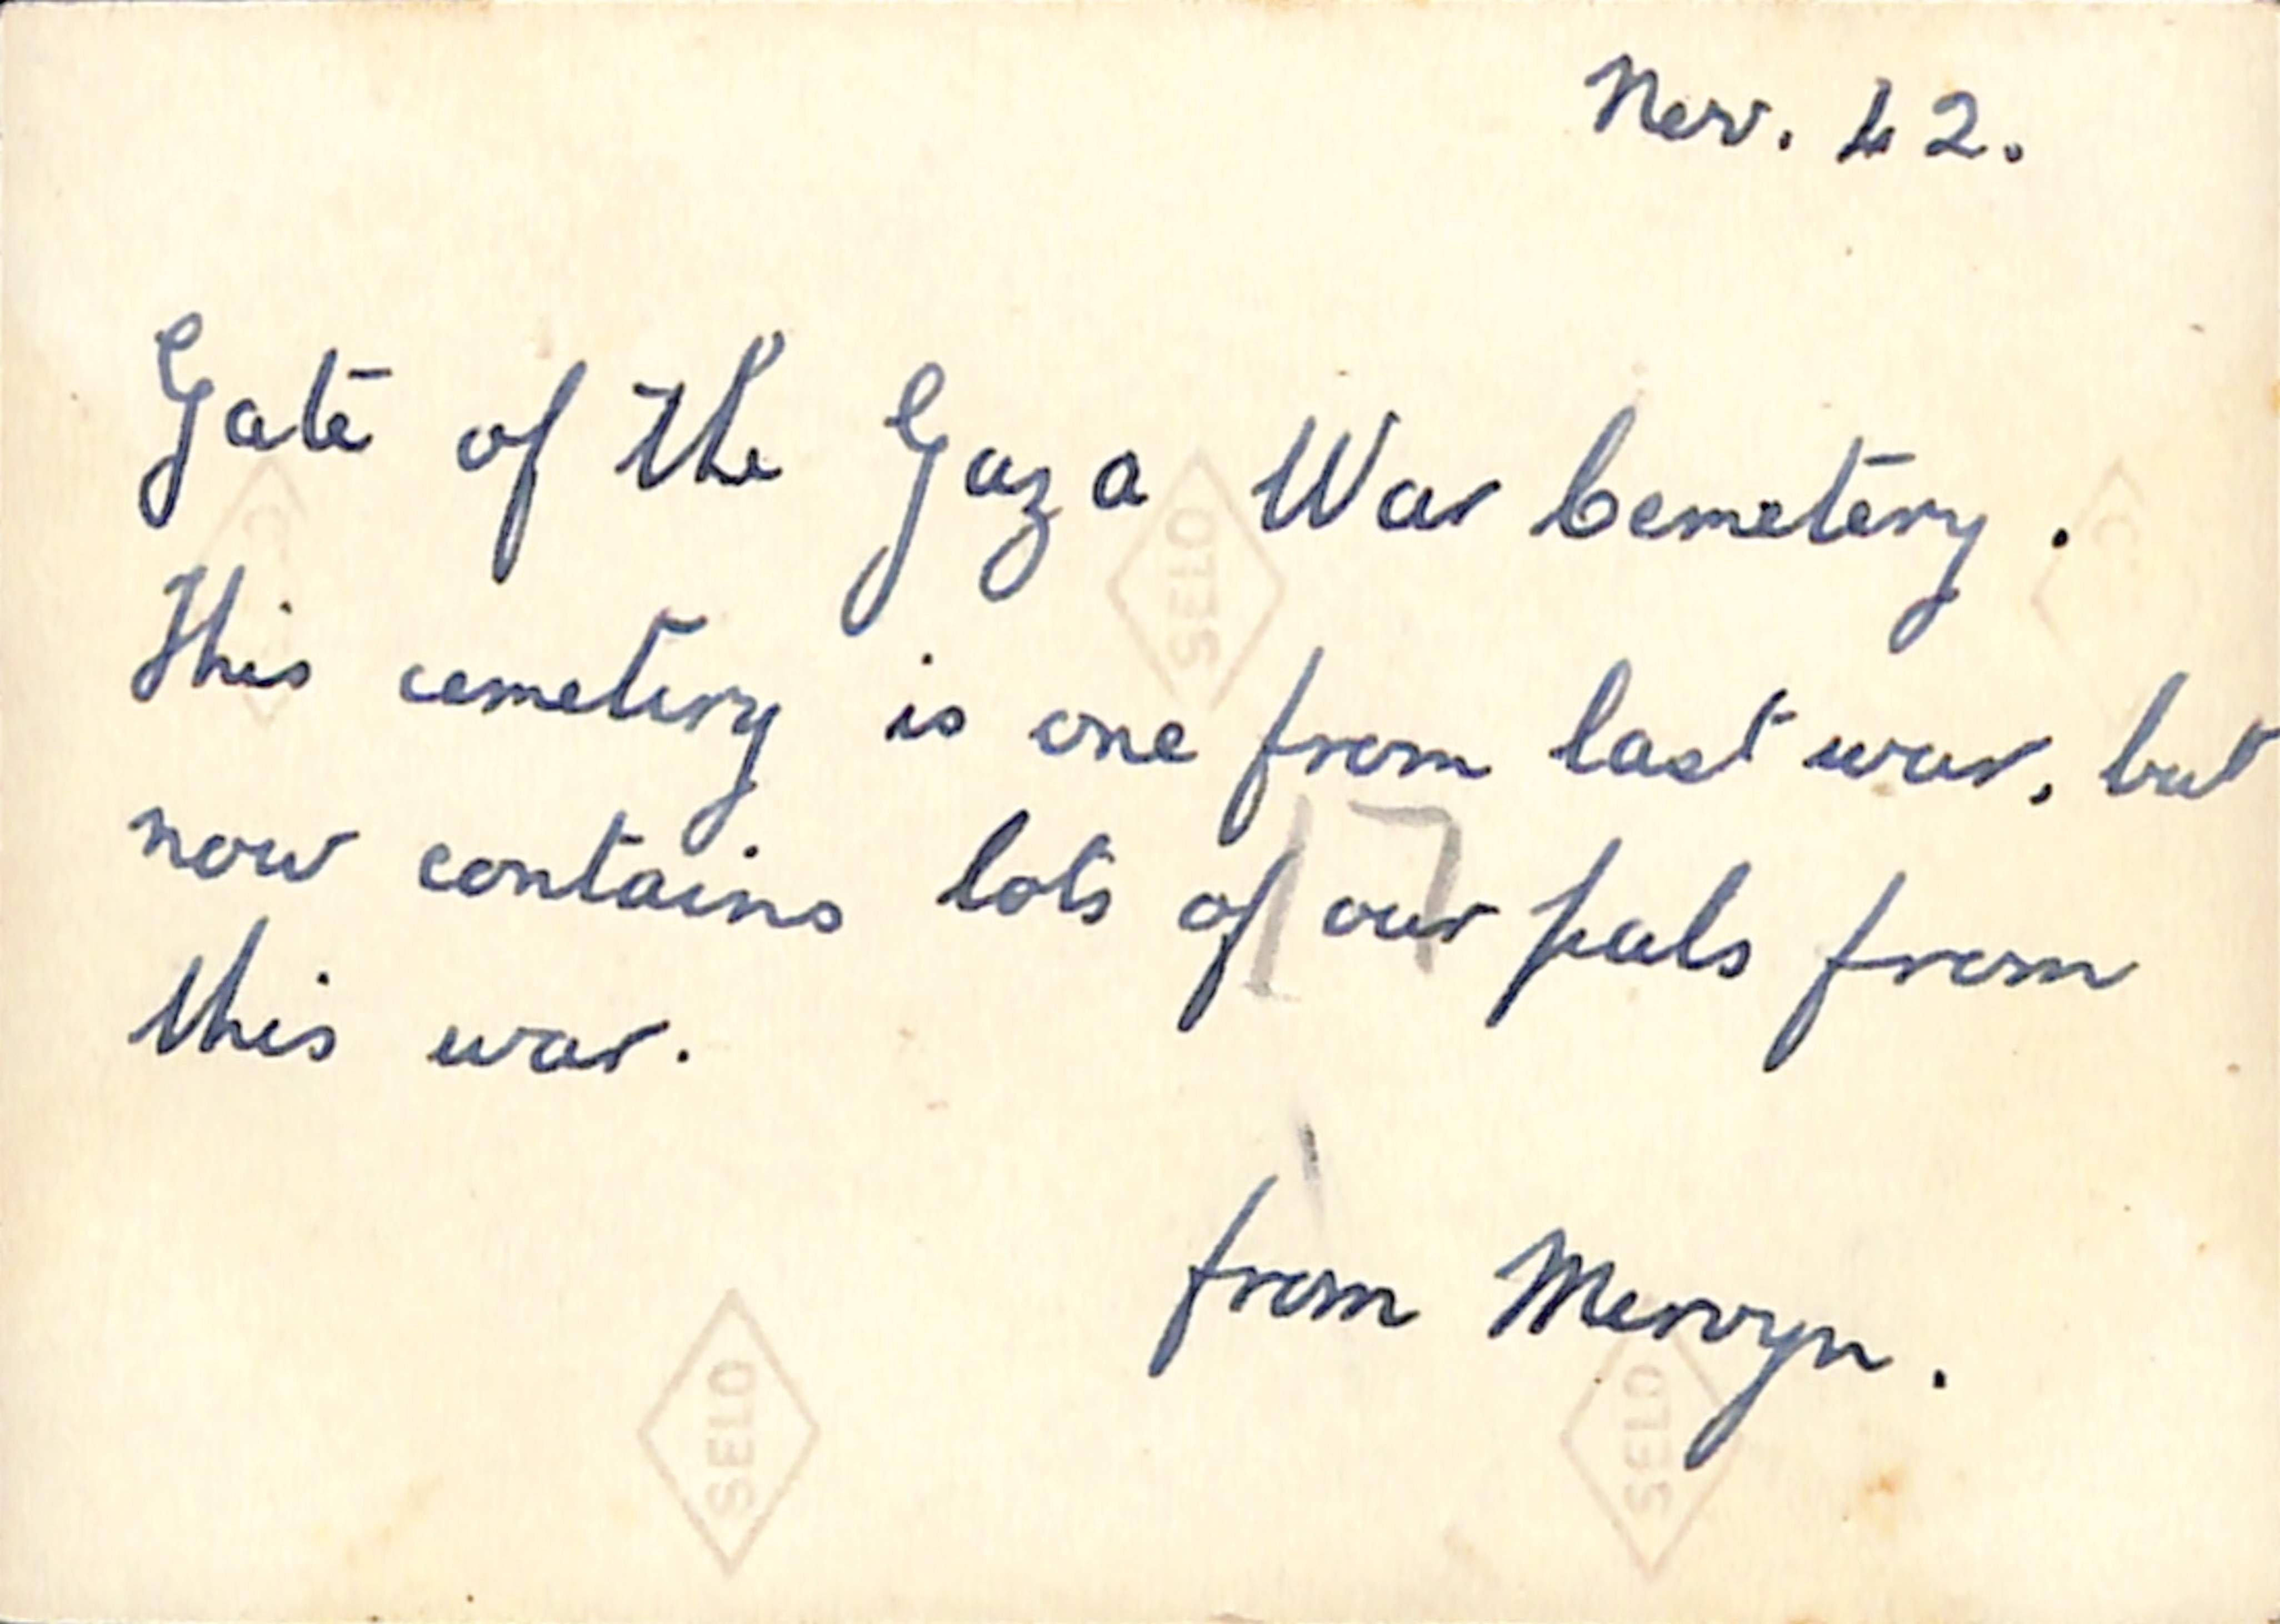 Nov. 42.
Gate of the Gaza War Cemetery.
This cemetery is one from last war, but
now contains lots of our pals from
this war.
17
from Mervyn.
SELO
SELO
SELO